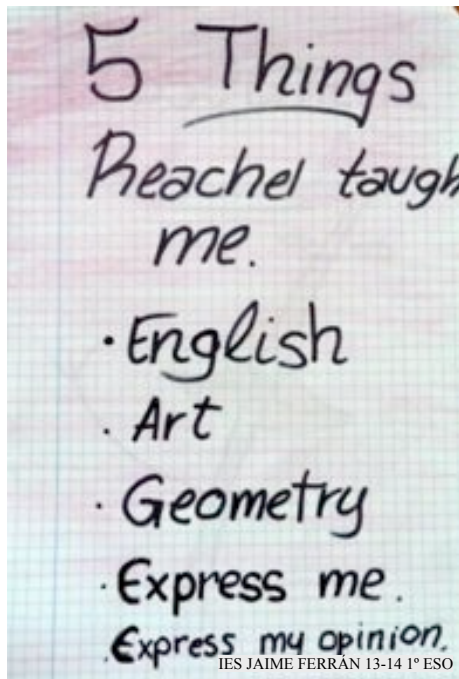 5 Things
Reachel taugh
me.
· English
· Art
· Geometry
· Express me.
· Express my opinion.
IES JAIME FERRÁN 13-14 1º ESO